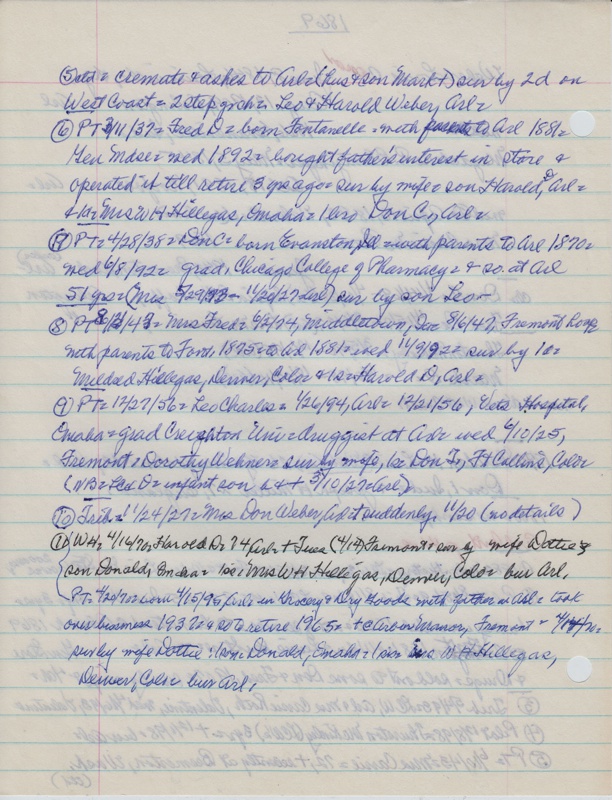 1869
⑤ cremate & ashes to Arl = (hus & son Mark +) sur by 2d on
West Coast = 2 step grch = Leo & Harold Weber, Arl =
⑥ PT 3/11/37 = Fred D = born Fontanelle = with parents to Arl 1881 =
Gen Mdse = wed 1892 = bought father's interest in store &
operated it till retire 3 yrs ago = sur by wife = son Harold D, Arl =
& 1d = Mrs W H Hillegas, Omaha = 1 bro Don C, Arl =
⑦ PT = 4/28/38 = Don C = born Evanston, Ill = with parents to Arl 1870 =
wed 6/8/92 = grad, Chicago College of Pharmacy = & so. at Arl
51 yrs = (Mrs 5/29/73 - 11/20/27 Arl) sur by son Leo -
⑧ PT 8/ /43 = Mrs Fred = 6/2/74, Middletown, 8/6/43, Fremont Hosp
with parents to 1875 = to Arl 1881 = wed 11/9/92 = sur by 1d =
Mildred Hillegas, Denver, Colo & 1s = Harold D, Arl =
⑨ PT = 12/27/56 = Leo Charles = 1/26/94, Arl = 12/21/56, Vets Hospital,
Omaha = grad Creighton Univ = druggist at Arl = wed 6/10/25,
Fremont = Dorothy Wehner = sur by wife, 1s Don Jr, Ft Collins, Colo
(NB = Fred D = infant son b & + 3/10/27 = Arl)
⑩ Trib = 11/24/27 = Mrs Don Weber, Arl + suddenly, 11/20 (no details)
⑪ WH = 4/16/70 = Harold D = 74, Arl = + Tues (4/14) Fremont = sur by wife Dottie =
son Donald, Omaha = 1 sis = Mrs W H Hillegas, Denver, Colo = bur Arl,
PT = 4/20/70 = born 4/15/95, Arl = in Grocery & Dry Goods with father at Arl = took
over business 1937 = & so to retire 1965 = + Arbor Manor, Fremont = 4/14/70 =
sur by wife Dottie = 1 son = Donald, Omaha = 1 sis = W H Hillegas,
Denver, Colo = bur Arl,